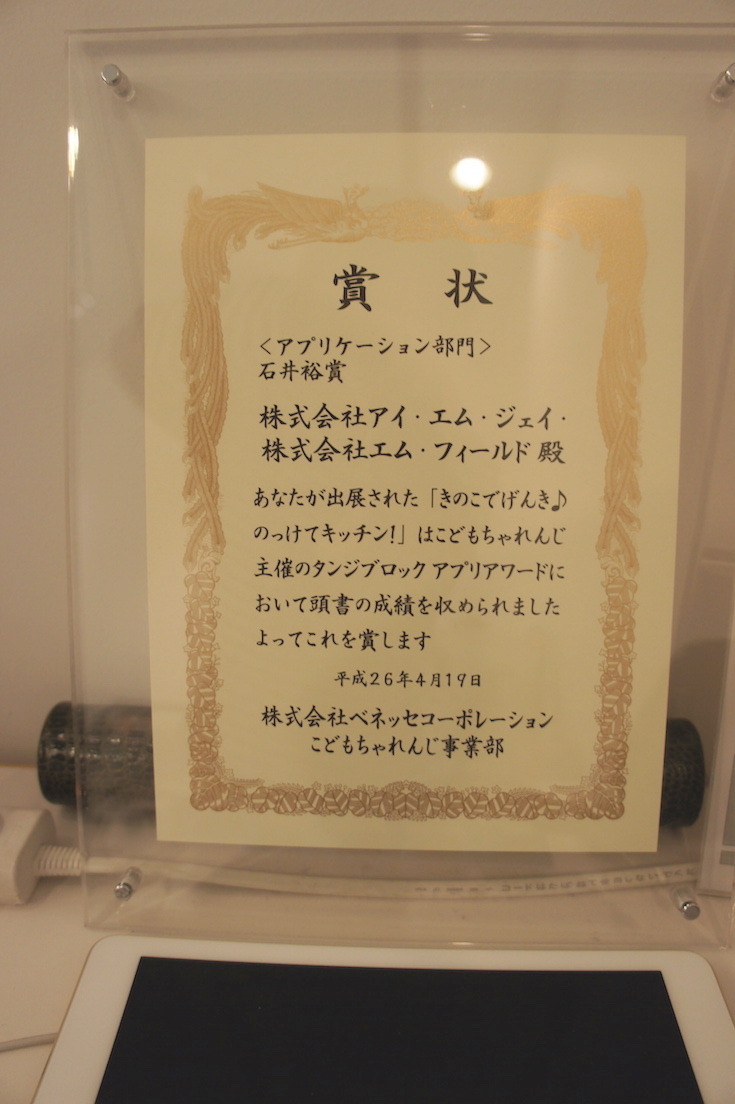 賞状
<アプリケーション部門>
石井裕賞
株式会社アイ・エム・ジェイ・
株式会社エム・フィールド 殿
あなたが出展された「きのこでげんき♪
のっけてキッチン!」はこどもちゃれんじ
主催のタンジブロック アプリアワードに
おいて頭書の成績を収められました
よってこれを賞します
平成26年4月19日
株式会社ベネッセコーポレーション
こどもちゃれんじ事業部